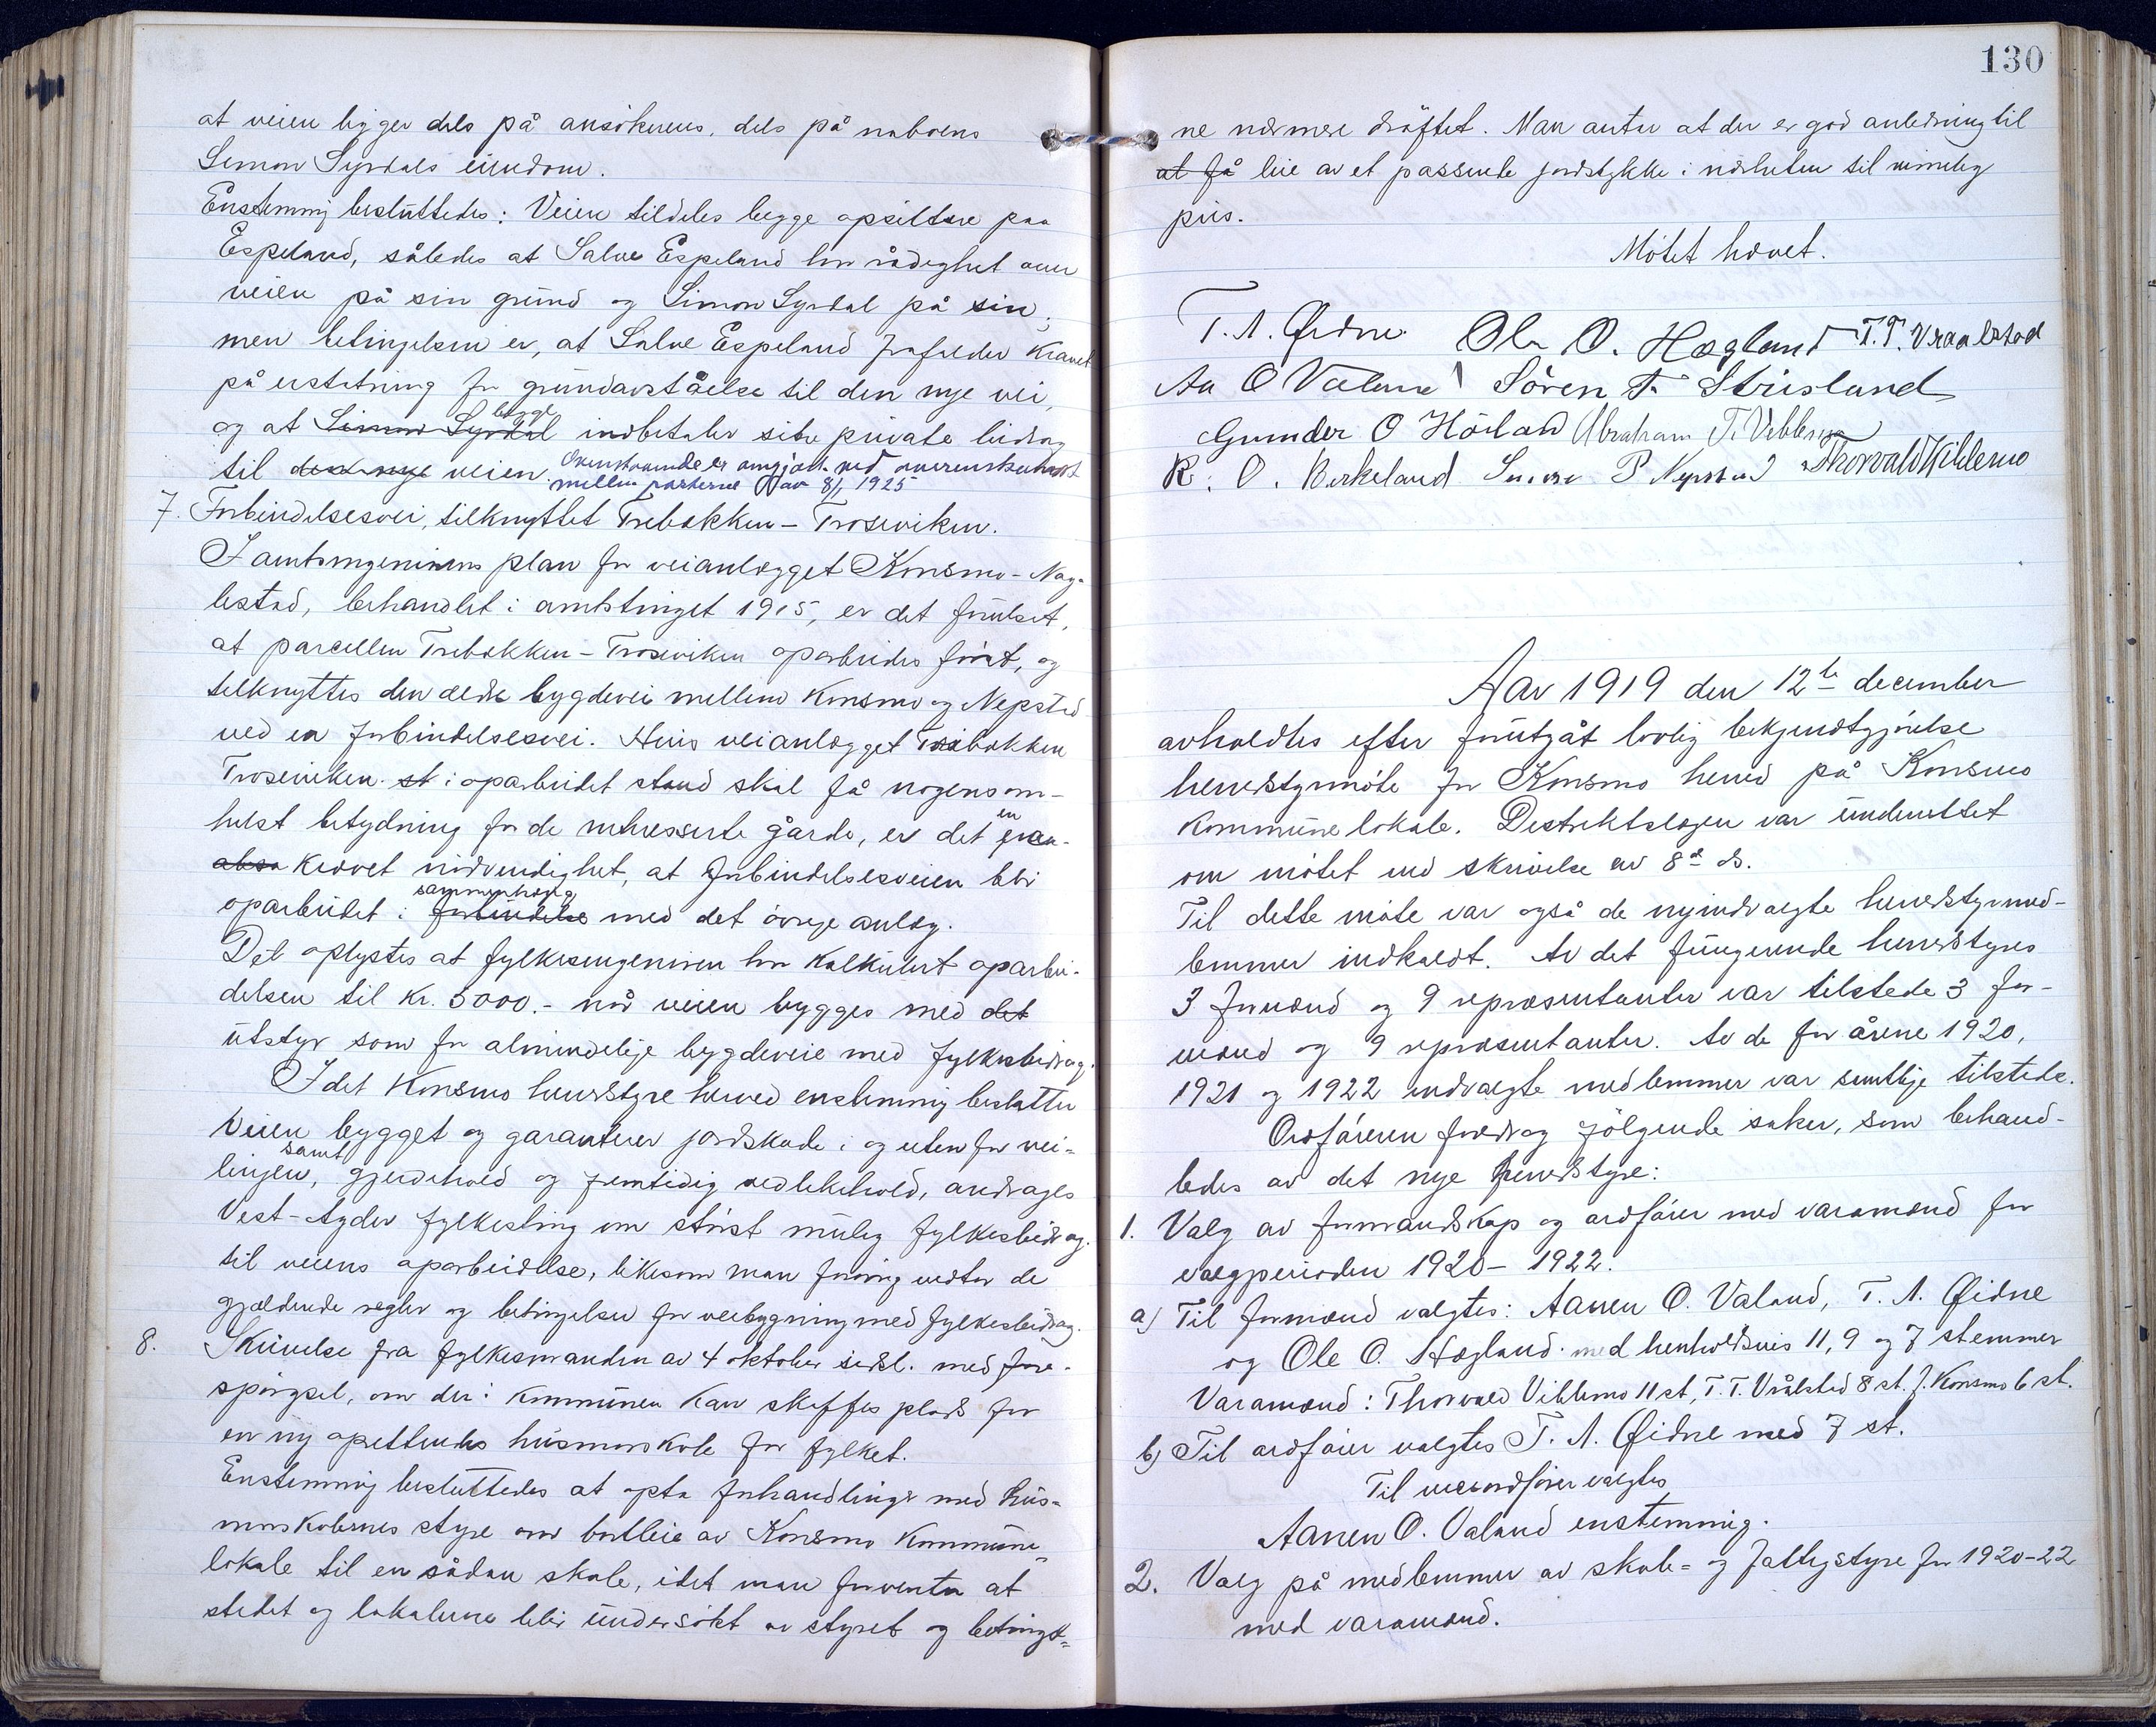 at veien ligger dels på ansökerens, dels på naboens
Simon Syrdals eiendom.
Enstemmig besluttedes: Veien tildeles begge opsittere paa
Espeland, således at Salve Espeland har rådighet over
veien på sin grund og Simon Syrdal på sin,
men betingelsen er, at Salve Espeland frafalder kravet
på erstatning for grundavståelse til den nye vei,
og at Simon Syrdal begge indbetaler sine private bidrag
til den nye veien. Ovenstaaende er omgjort ved overenskomst
mellem parterne av 8/1 1925
7. Forbindelsesvei, tilknyttet Trebakken - Troseviken.
I amtsingeniørens plan for veianlægget Konsmo - Nag-
lestad, behandlet i amtstinget 1915, er det forutsat,
at parcellen Trebakken - Troseviken oparbeides først, og
tilknyttes den ældre bygdevei mellem Konsmo og Nepstad
ved en forbindelsesvei. Hvis veianlægget Trebakken
Troseviken st i oparbeidet stand skal få nogensom-
helst betydning for de interesserte gårde, er det en paa-
absa krævet nödvendighet, at forbindelsesveien blir
oparbeidet i forbindelse sammenhæng med det övrige anlæg.
Det oplystes at fylkesingeniøren har kalkulert oparbei-
delsen til kr. 5000.- når veien bygges med det
utstyr som for almindelige bygdeveie med fylkesbidrag.
Idet Konsmo herredstyre herved enstemmig beslutter
veien bygget og garanterer jordskade i og utenfor vei-
linjen, samt gjerdehold og fremtidig vedlikehold, andrages
Vest-Agder fylkesting om störst mulig fylkesbidrag
til veiens oparbeidelse, likesom man forövrig vedtar de
gjældende regler og betingelser for veibygning med fylkesbidrag.
8. Skrivelse fra fylkesmanden av 4 oktober sidstl. med fore-
spörgsel, om der i kommunen kan skaffes plads for
en ny oprettendes husmorskole for fylket.
Enstemmig besluttedes at opta forhandlinger med hus-
morskolernes styre om bortleie av Konsmo kommune-
lokale til en sådan skole, idet man forventer at
stedet og lokalerne blir undersökt av styret og betingel-
130
ne nærmere dröftet. Man antar at der er god anledning til
at få leie av et passende jordstykke i nærheten til rimelig
pris.
Mötet hævet.
T. A. Øidne Ole O. Hægland T. T. Vraalstad
Aa O Valand Sören T. Strisland
Gunder O Höiland Abraham T. Vibbersmo
R. O. Birkeland P Nepstad Thorvald Viblemo
Aar 1919 den 12te december
avholdtes efter forutgåt lovlig bekjendtgjörelse
herredstyrmöte for Konsmo herred på Konsmo
kommunelokale. Distriktslægen var underrettet
om mötet ved skrivelse av 8d ds.
Til dette möte var også de nyindvalgte herredstyrmed-
lemmer indkaldt. Av det fungerende herredstyres
3 formænd og 9 repræsentanter var tilstede 3 for-
mænd og 9 repræsentanter. Av de for årene 1920,
1921 og 1922 indvalgte medlemmer var samtlige tilstede.
Ordföreren foredrog fölgende saker, som behand-
ledes av det nye herredstyre:
1. Valg av formandskap og ordförer med varamænd for
valgperioden 1920 - 1922.
a) Til formænd valgtes: Aanen O. Valand, T. A. Øidne
og Ole O. Hægland med henholdsvis 11, 9 og 7 stemmer
Varamænd: Thorvald Viblemo 11 st, T. T. Vrålstad 8 st. J. Konsmo 6 st.
b) Til ordförer valgtes T. A. Øidne med 7 st.
Til viceordförer valgtes
Aanen O. Valand enstemmig.
2. Valg på medlemmer av skole- og fattigstyre for 1920-22
med varamænd.